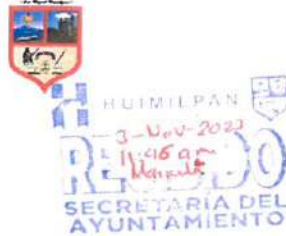 HUIMILPAN
3-Nov-2023
11:46 am
RECIBIDO
SECRETARÍA DEL
AYUNTAMIENTO